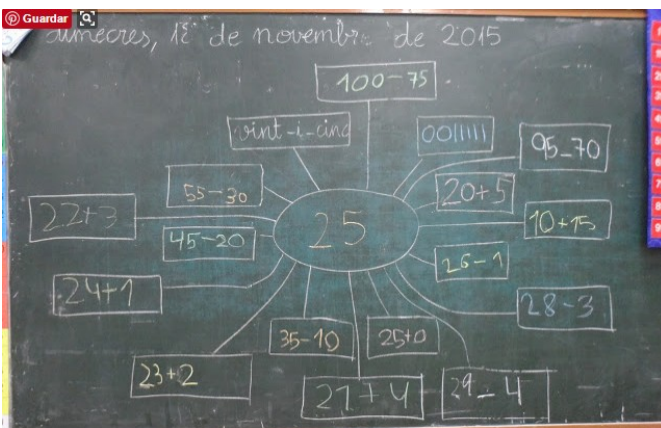 Guardar
dimecres, 18 de novembre de 2015
100-75
vint-i-cinc
0011111
95-70
55-30
20+5
22+3
10+15
45-20
25
26-1
24+1
28-3
35-10
25+0
23+2
21+4
29-4